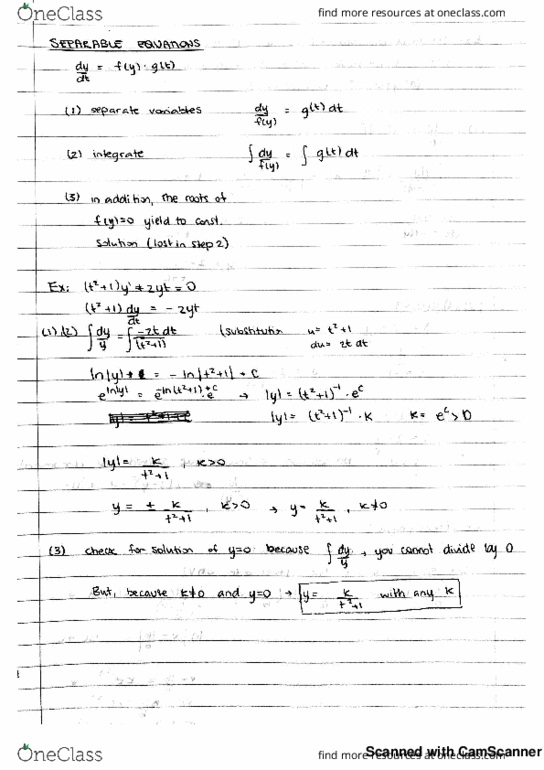 OneClass
find more resources at oneclass.com
SEPARABLE EQUATIONS
dy/dt = f(y) · g(t)
(1) separate variables dy/f(y) = g(t) dt
(2) integrate ∫ dy/f(y) = ∫ g(t) dt
(3) in addition, the roots of
f(y)=0 yield to const.
solution (lost in step 2)
Ex: (t²+1)y' + 2yt = 0
(t²+1) dy/dt = -2yt
(1)&(2) ∫ dy/y = ∫ -2t dt/(t²+1) (substitution u= t²+1
du= 2t dt
ln|y| = -ln|t²+1| + C
e^ln|y| = e^-ln(t²+1) · e^c → |y| = (t²+1)^-1 · e^c
|y| = (t²+1)^-1 · k k= e^c > 0
|y| = k/t²+1, k>0
y = ± k/t²+1, k>0 → y= k/t²+1, k≠0
(3) check for solution of y=0 because ∫ dy/y → you cannot divide by 0
But, because k≠0 and y=0 → y= k/t²+1 with any k
OneClass
find more resources at oneclass.com
Scanned with CamScanner